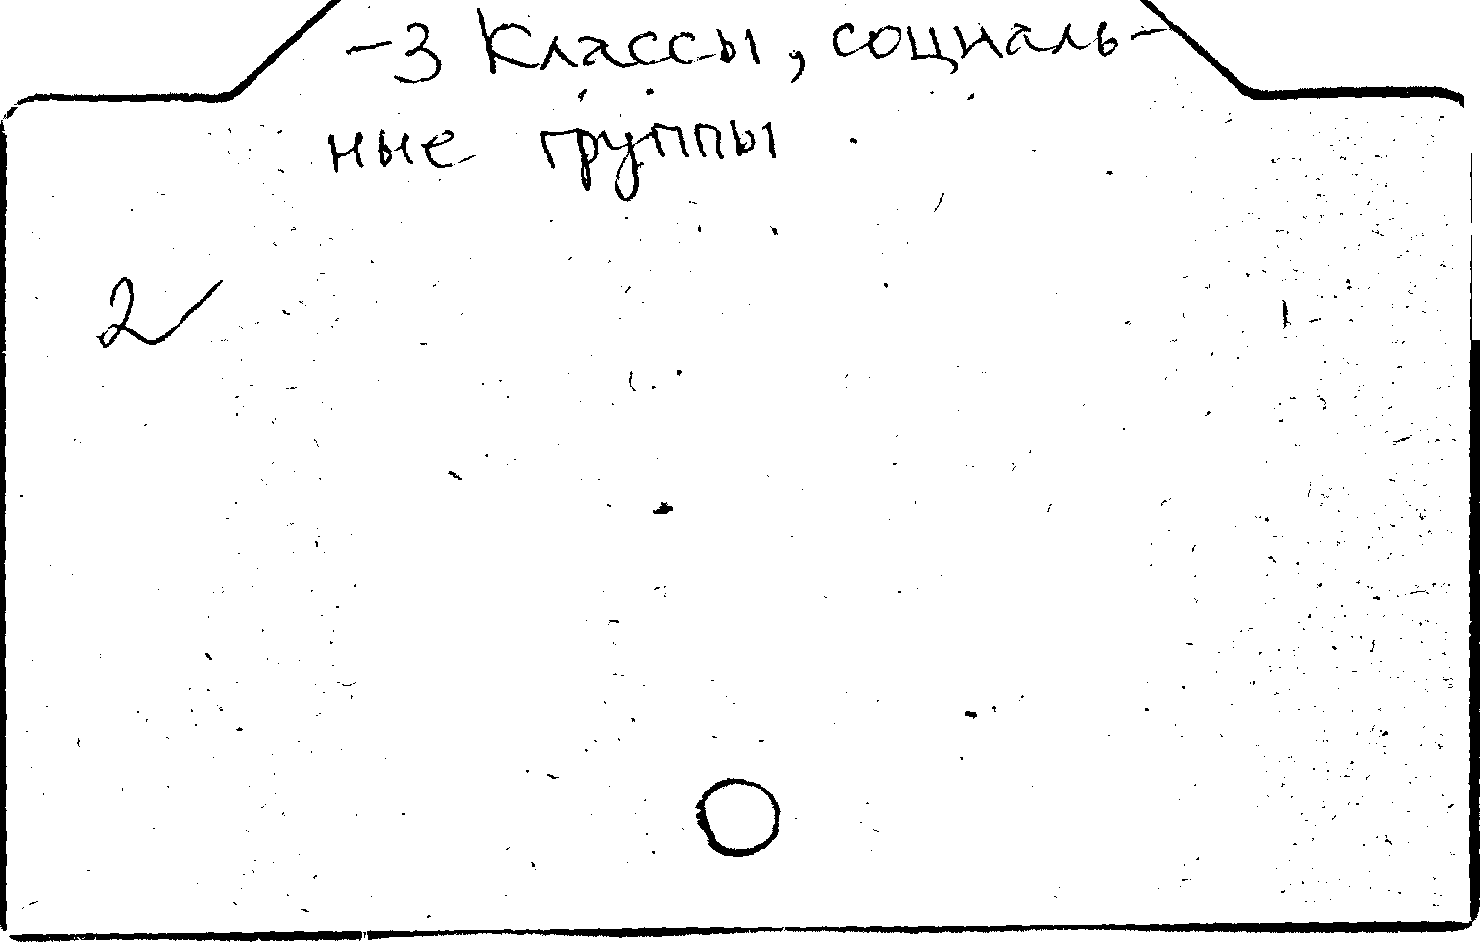 -3 Классы, социаль-
ные группы
2